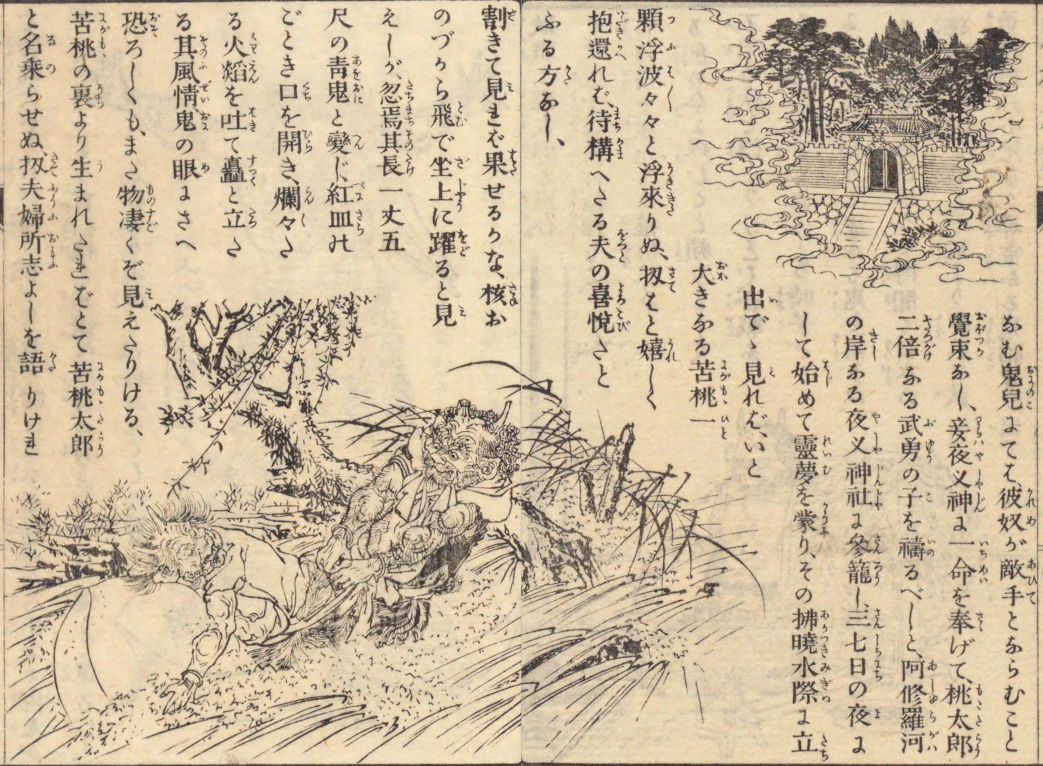 なむ鬼兒にては、彼奴が敵手とならむこと
覺束なし、妾夜叉神に一命を奉げて、桃太郎
二倍なる武勇の子を禱るべしと、阿修羅河
の岸なる夜叉神社に參籠し、三七日の夜に
して始めて靈夢を蒙りその拂曉水際に立
出でゝ見れば、いと
大きなる苦桃一
顆浮波々々と浮來りぬ、扨はと嬉しく
抱還れば、待構へたる夫の喜悅たと
ふる方なし、
割きて見れば果せるかな、核お
のづから飛で坐上に躍ると見
えしが、忽焉其長一丈五
尺の靑鬼と變じ、紅皿の
ごとき口を開き、爛々た
る火熖を吐て矗と立た
る其風情鬼の眼にさへ
恐ろしくも、また物凄くぞ見えたりける、
苦桃の裏より生まれたればとて苦桃太郎
と名乘らせぬ、扨夫婦所志よしを語りけれ